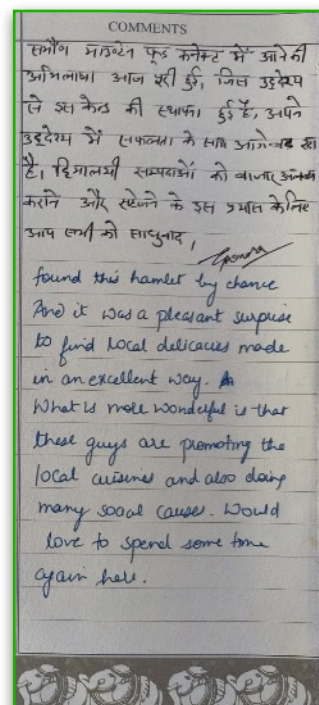 COMMENTS
समौण माउन्टेन फूड कनेक्ट में आने की
अभिलाषा आज पूरी हुई, जिस उद्देश्य
से इस केन्द्र की स्थापना हुई है, अपने
उद्देश्य में सफलता के साथ आगे बढ़ रहा
है। हिमालयी सम्पदाओं को बाजार
कराने और सहेजने के इस प्रयास के लिए
आप सभी को साधुवाद,
found this hamlet by chance
And it was a pleasant surprise
to find local delicacies made
in an excellent way.
What is more wonderful is that
these guys are promoting the
local cuisines and also doing
many social causes. Would
love to spend some time
again here.